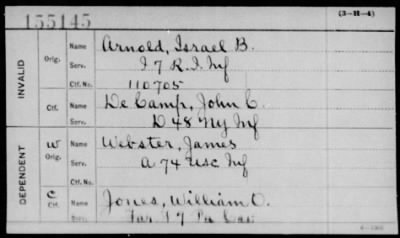 155145
(3-H-4)
INVALID
Orig. Name Arnold, Israel B.
Serv. I 7 R.I. Inf
Ctf. No. 110705
Ctf. Name De Camp, John C.
Serv. D 48 Ny Inf
DEPENDENT
W Orig. Name Webster, James
Serv. A 74 usc Inf
Ctf. No.
C Ctf. Name Jones, William O.
Serv. Far 17 Pa Cav